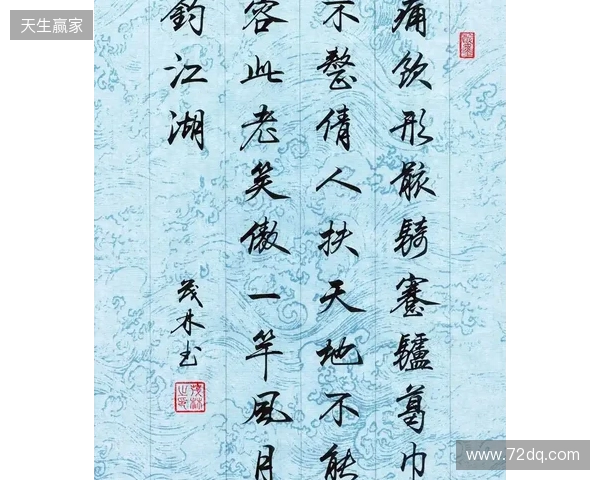 痛飲形骸騎蹇驢葛巾
不整倩人扶天地不能
容此老笑傲一竿風月
釣江湖
茂林书
天生赢家
www.72dq.com